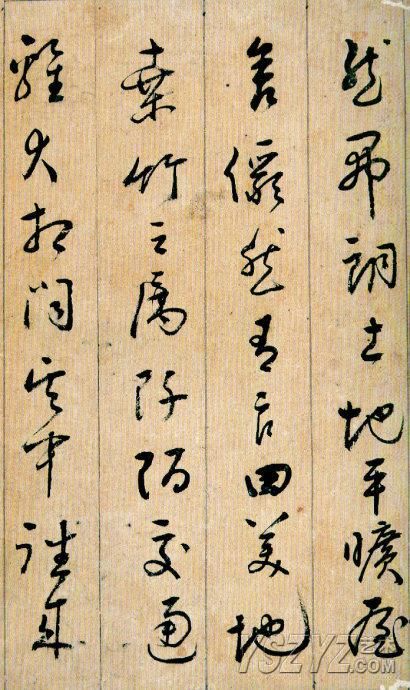 然開朗土地平曠屋
舍儼然有良田美池
桑竹之屬阡陌交通
雞犬相聞其中往來
YSZYZ